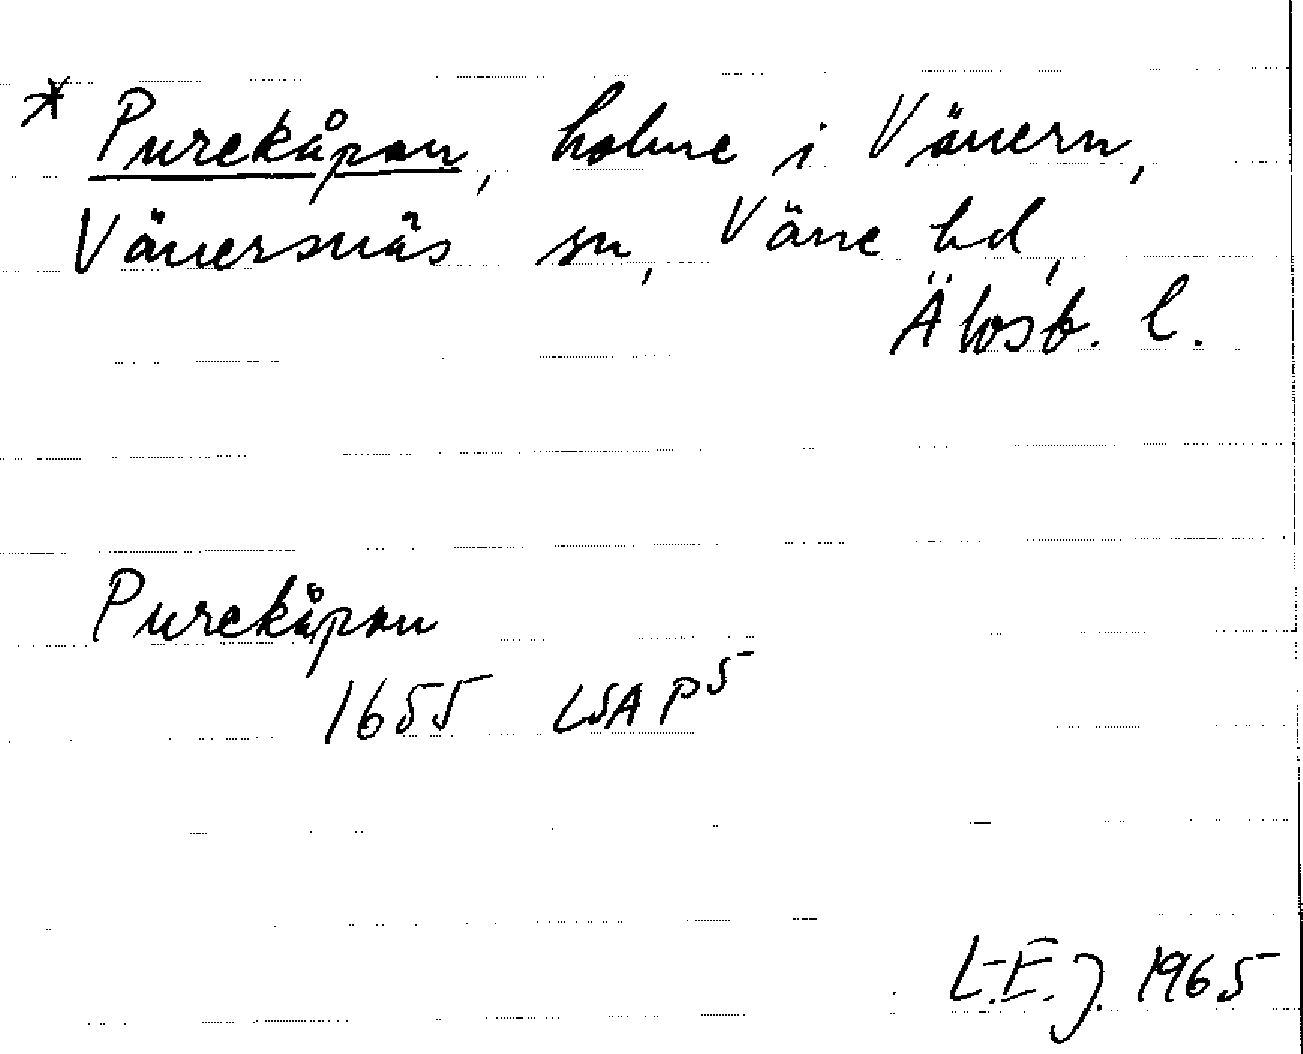 * Purekåpan, holme i Vänern,
Vänersnäs sn, Väne hd,
Älvsb. l.
Purekåpan
1655 LSA P5
L.E.J. 1965